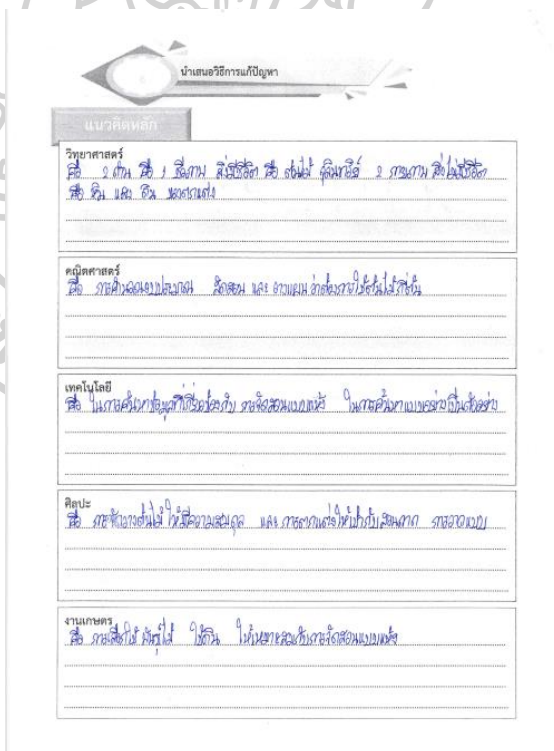 นำเสนอวิธีการแก้ปัญหา
แนวคิดหลัก
วิทยาศาสตร์
คือ 2 ด้าน คือ 1 ชีวภาพ สิ่งมีชีวิต คือ ต้นไม้ จุลินทรีย์ 2 กายภาพ สิ่งไม่มีชีวิต
คือ หิน และ ดิน ของตกแต่ง
คณิตศาสตร์
คือ การคำนวณงบประมาณ จัดสวน และ วางแผน ว่าต้องการใช้ต้นไม้กี่ต้น
เทคโนโลยี
คือ ในการค้นหาข้อมูลที่เกี่ยวข้องกับ การจัดสวนแบบแห้ง ในการค้นหาแบบอย่างเป็นตัวอย่าง
ศิลปะ
คือ การจัดวางต้นไม้ ให้มีความสมดุล และ การตกแต่งให้เข้ากับสวนถาด การวาดแบบ
งานเกษตร
คือ การเลือกใช้ พันธุ์ไม้ ใช้ดิน ให้เหมาะสมกับการจัดสวนแบบแห้ง